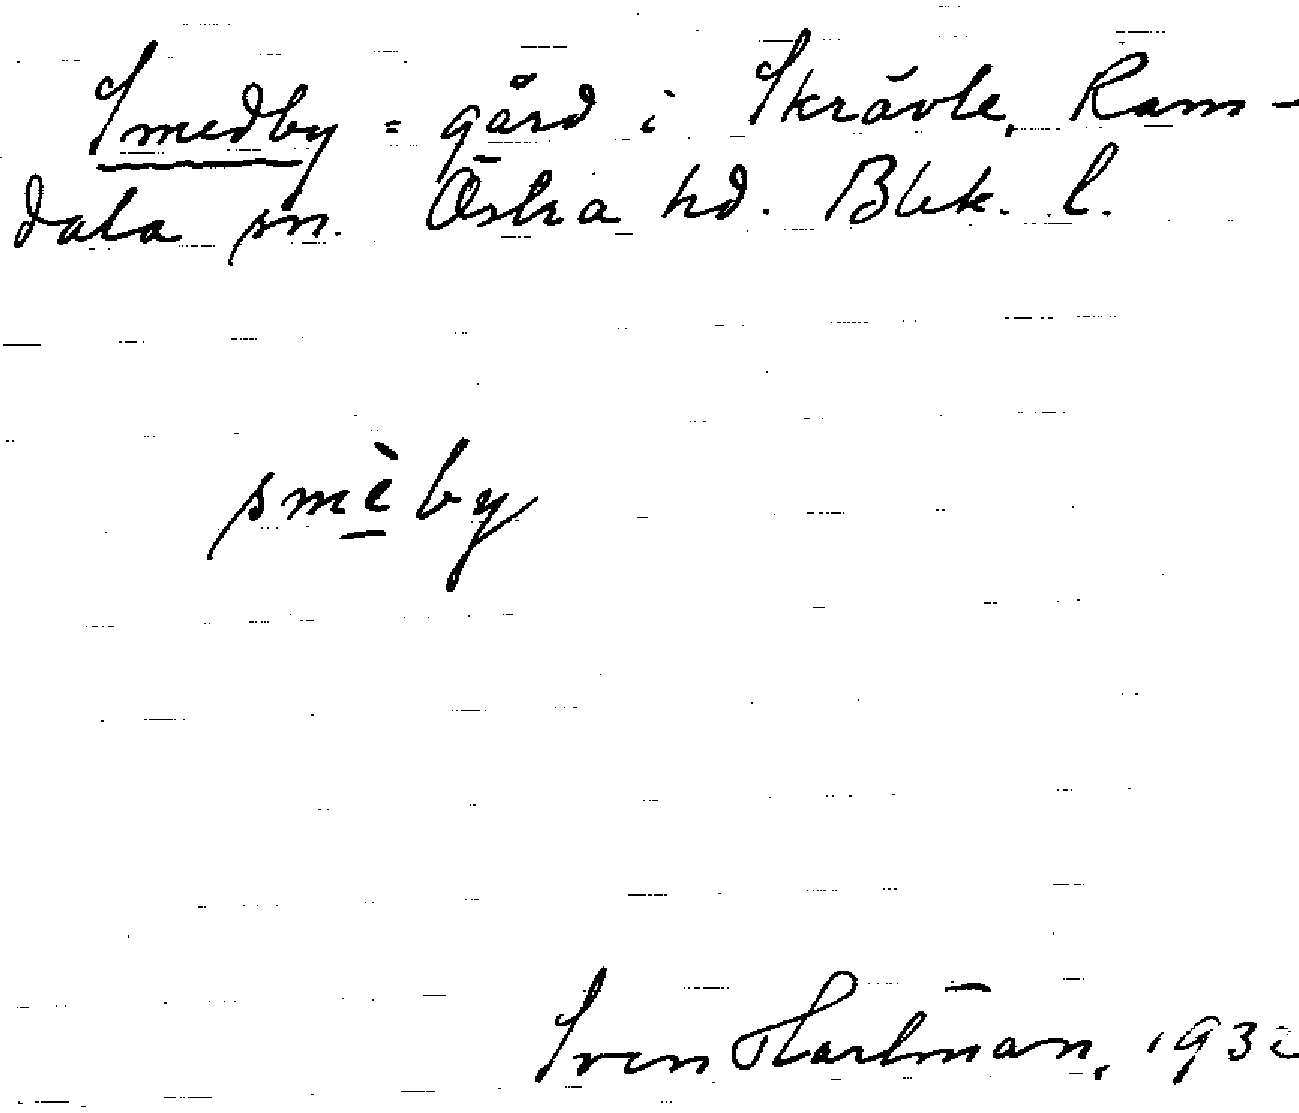 Smedby = gård i Skrävle, Ram-
dala sn. Östra hd. Blek. l.
smèby
Sven Hartman, 1932